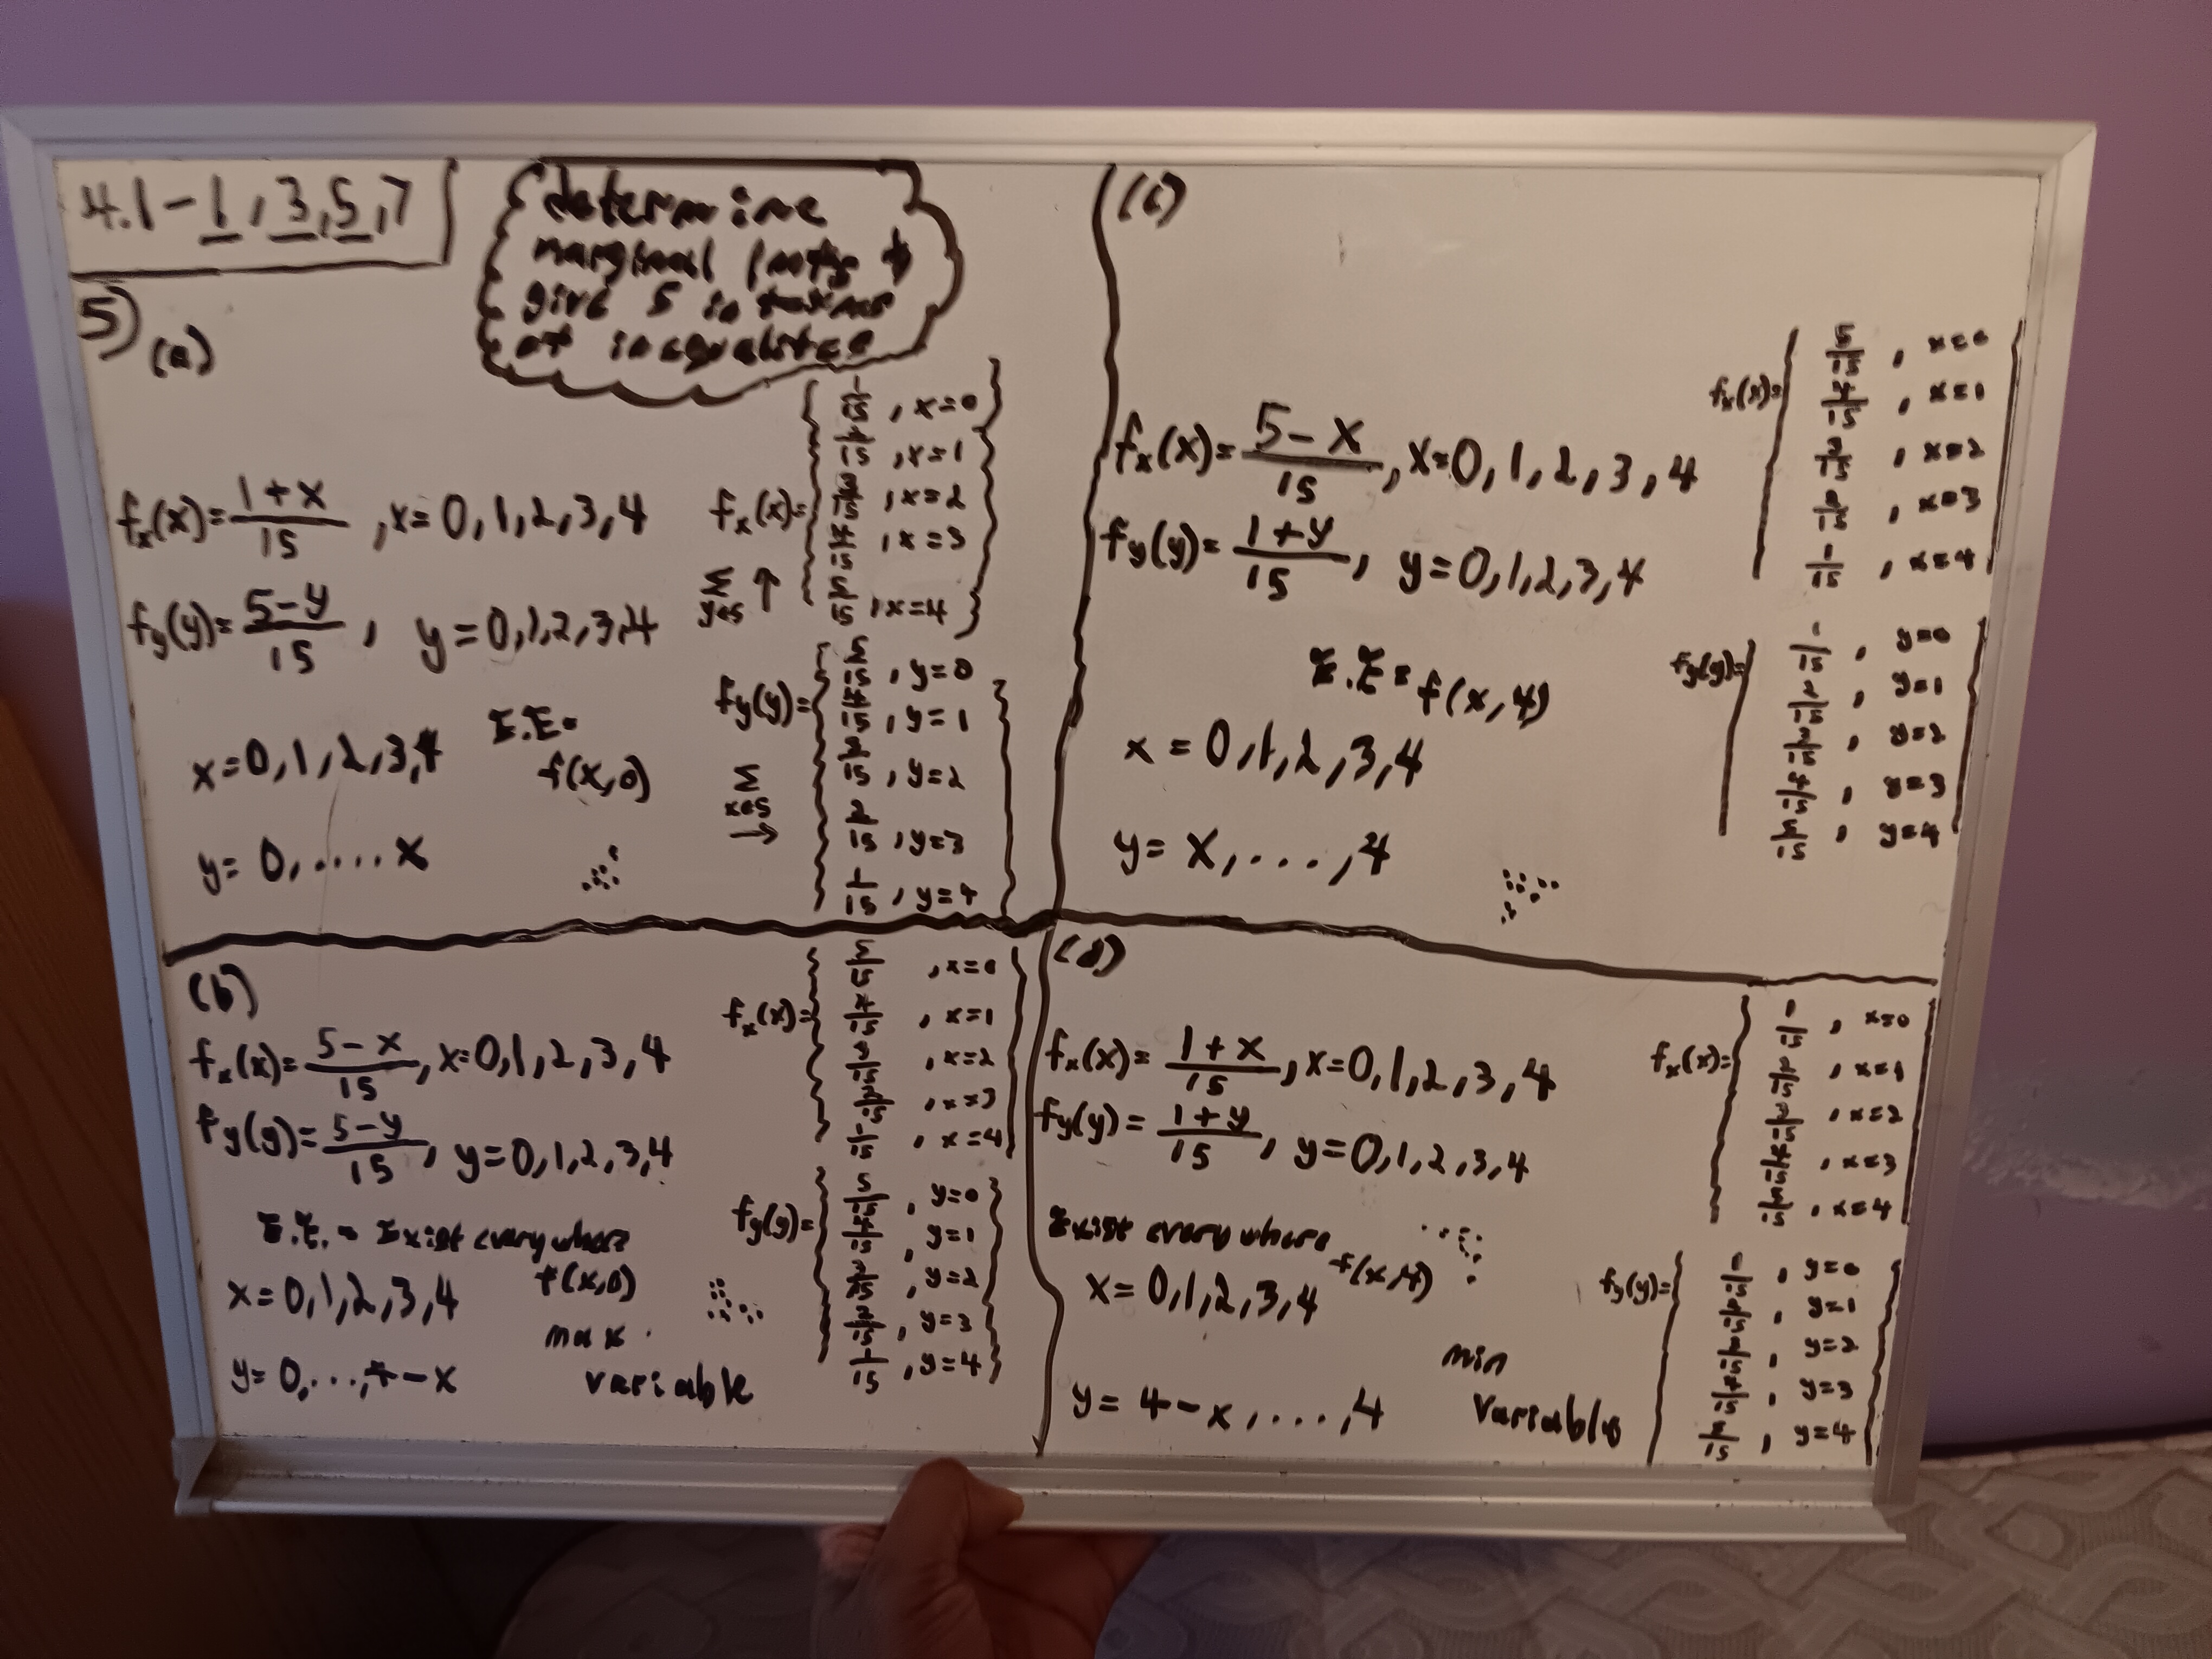 4.1-1,3,5,7
determine
marginal pmfs +
give S in terms
of inequalities
5)
(a)
fx(x)= 1+x/15 ,x=0,1,2,3,4
fy(y)= 5-y/15, y=0,1,2,3,4
x=0,1,2,3,4
E.E=
f(x,0)
y=0,....x
fx(x)=
1/15, x=0
2/15, x=1
3/15, x=2
4/15, x=3
5/15, x=4
Σ y∈S ↑
fy(y)=
5/15, y=0
4/15, y=1
3/15, y=2
2/15, y=3
1/15, y=4
Σ x∈S →
(b)
fx(x)= 5-x/15, x=0,1,2,3,4
fy(y)= 5-y/15, y=0,1,2,3,4
E.E.= Exist everywhere
f(x,0)
x=0,1,2,3,4
max
variable
y=0,...,4-x
fx(x)=
5/15, x=0
4/15, x=1
3/15, x=2
2/15, x=3
1/15, x=4
fy(y)=
5/15, y=0
4/15, y=1
3/15, y=2
2/15, y=3
1/15, y=4
(c)
fx(x)= 5-x/15, x=0,1,2,3,4
fy(y)= 1+y/15, y=0,1,2,3,4
E.E= f(x,4)
x=0,1,2,3,4
y=x,...,4
fx(x)=
5/15, x=0
4/15, x=1
3/15, x=2
2/15, x=3
1/15, x=4
fy(y)=
1/15, y=0
2/15, y=1
3/15, y=2
4/15, y=3
5/15, y=4
(d)
fx(x)= 1+x/15, x=0,1,2,3,4
fy(y)= 1+y/15, y=0,1,2,3,4
Exist everywhere
f(x,4)
x=0,1,2,3,4
min
variable
y=4-x,...,4
fx(x)=
1/15, x=0
2/15, x=1
3/15, x=2
4/15, x=3
5/15, x=4
fy(y)=
1/15, y=0
2/15, y=1
3/15, y=2
4/15, y=3
5/15, y=4